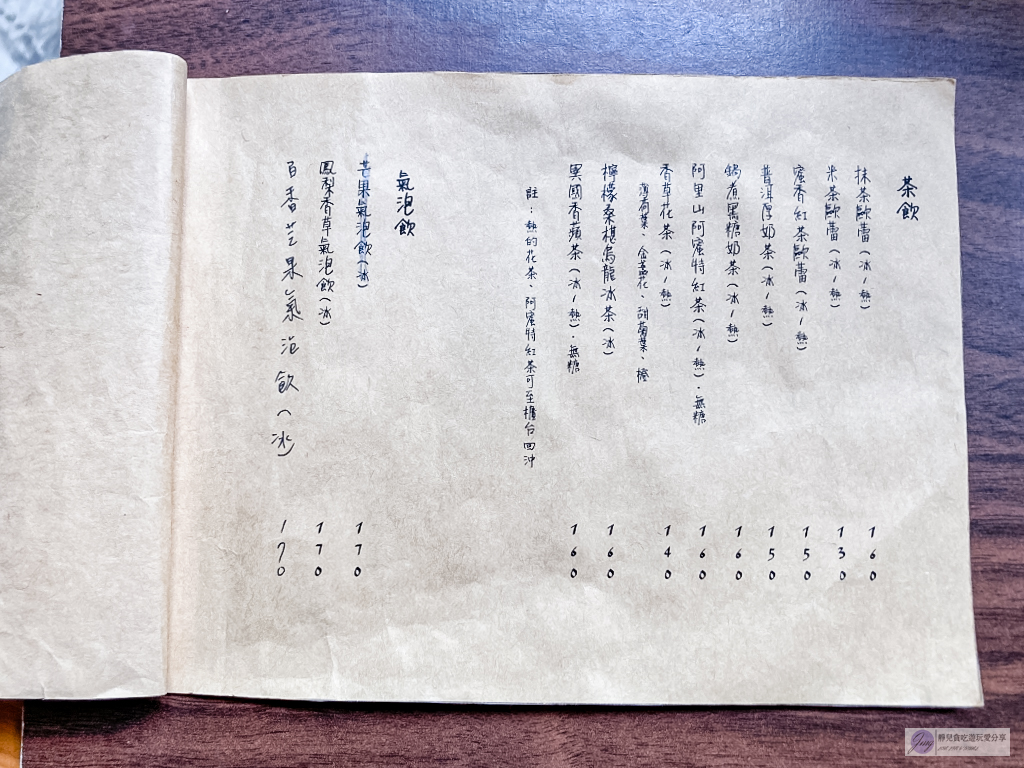 茶飲
抹茶歐蕾(冰/熱) 160
米茶歐蕾(冰/熱) 130
蜜香紅茶歐蕾(冰/熱) 150
普洱厚奶茶(冰/熱) 150
鍋煮黑糖奶茶(冰/熱) 160
阿里山阿蜜特紅茶(冰/熱).無糖 160
香草花茶(冰/熱) 140
薄荷葉、金盞花、甜菊葉、橙
檸檬桑椹烏龍冰茶(冰) 160
異國香蘋茶(冰/熱).無糖 160
註:熱的花茶、阿蜜特紅茶可至櫃台回沖
氣泡飲
芒果氣泡飲(冰) 170
鳳梨香草氣泡飲(冰) 170
百香芒果氣泡飲(冰) 170
靜兒貪吃遊玩愛分享